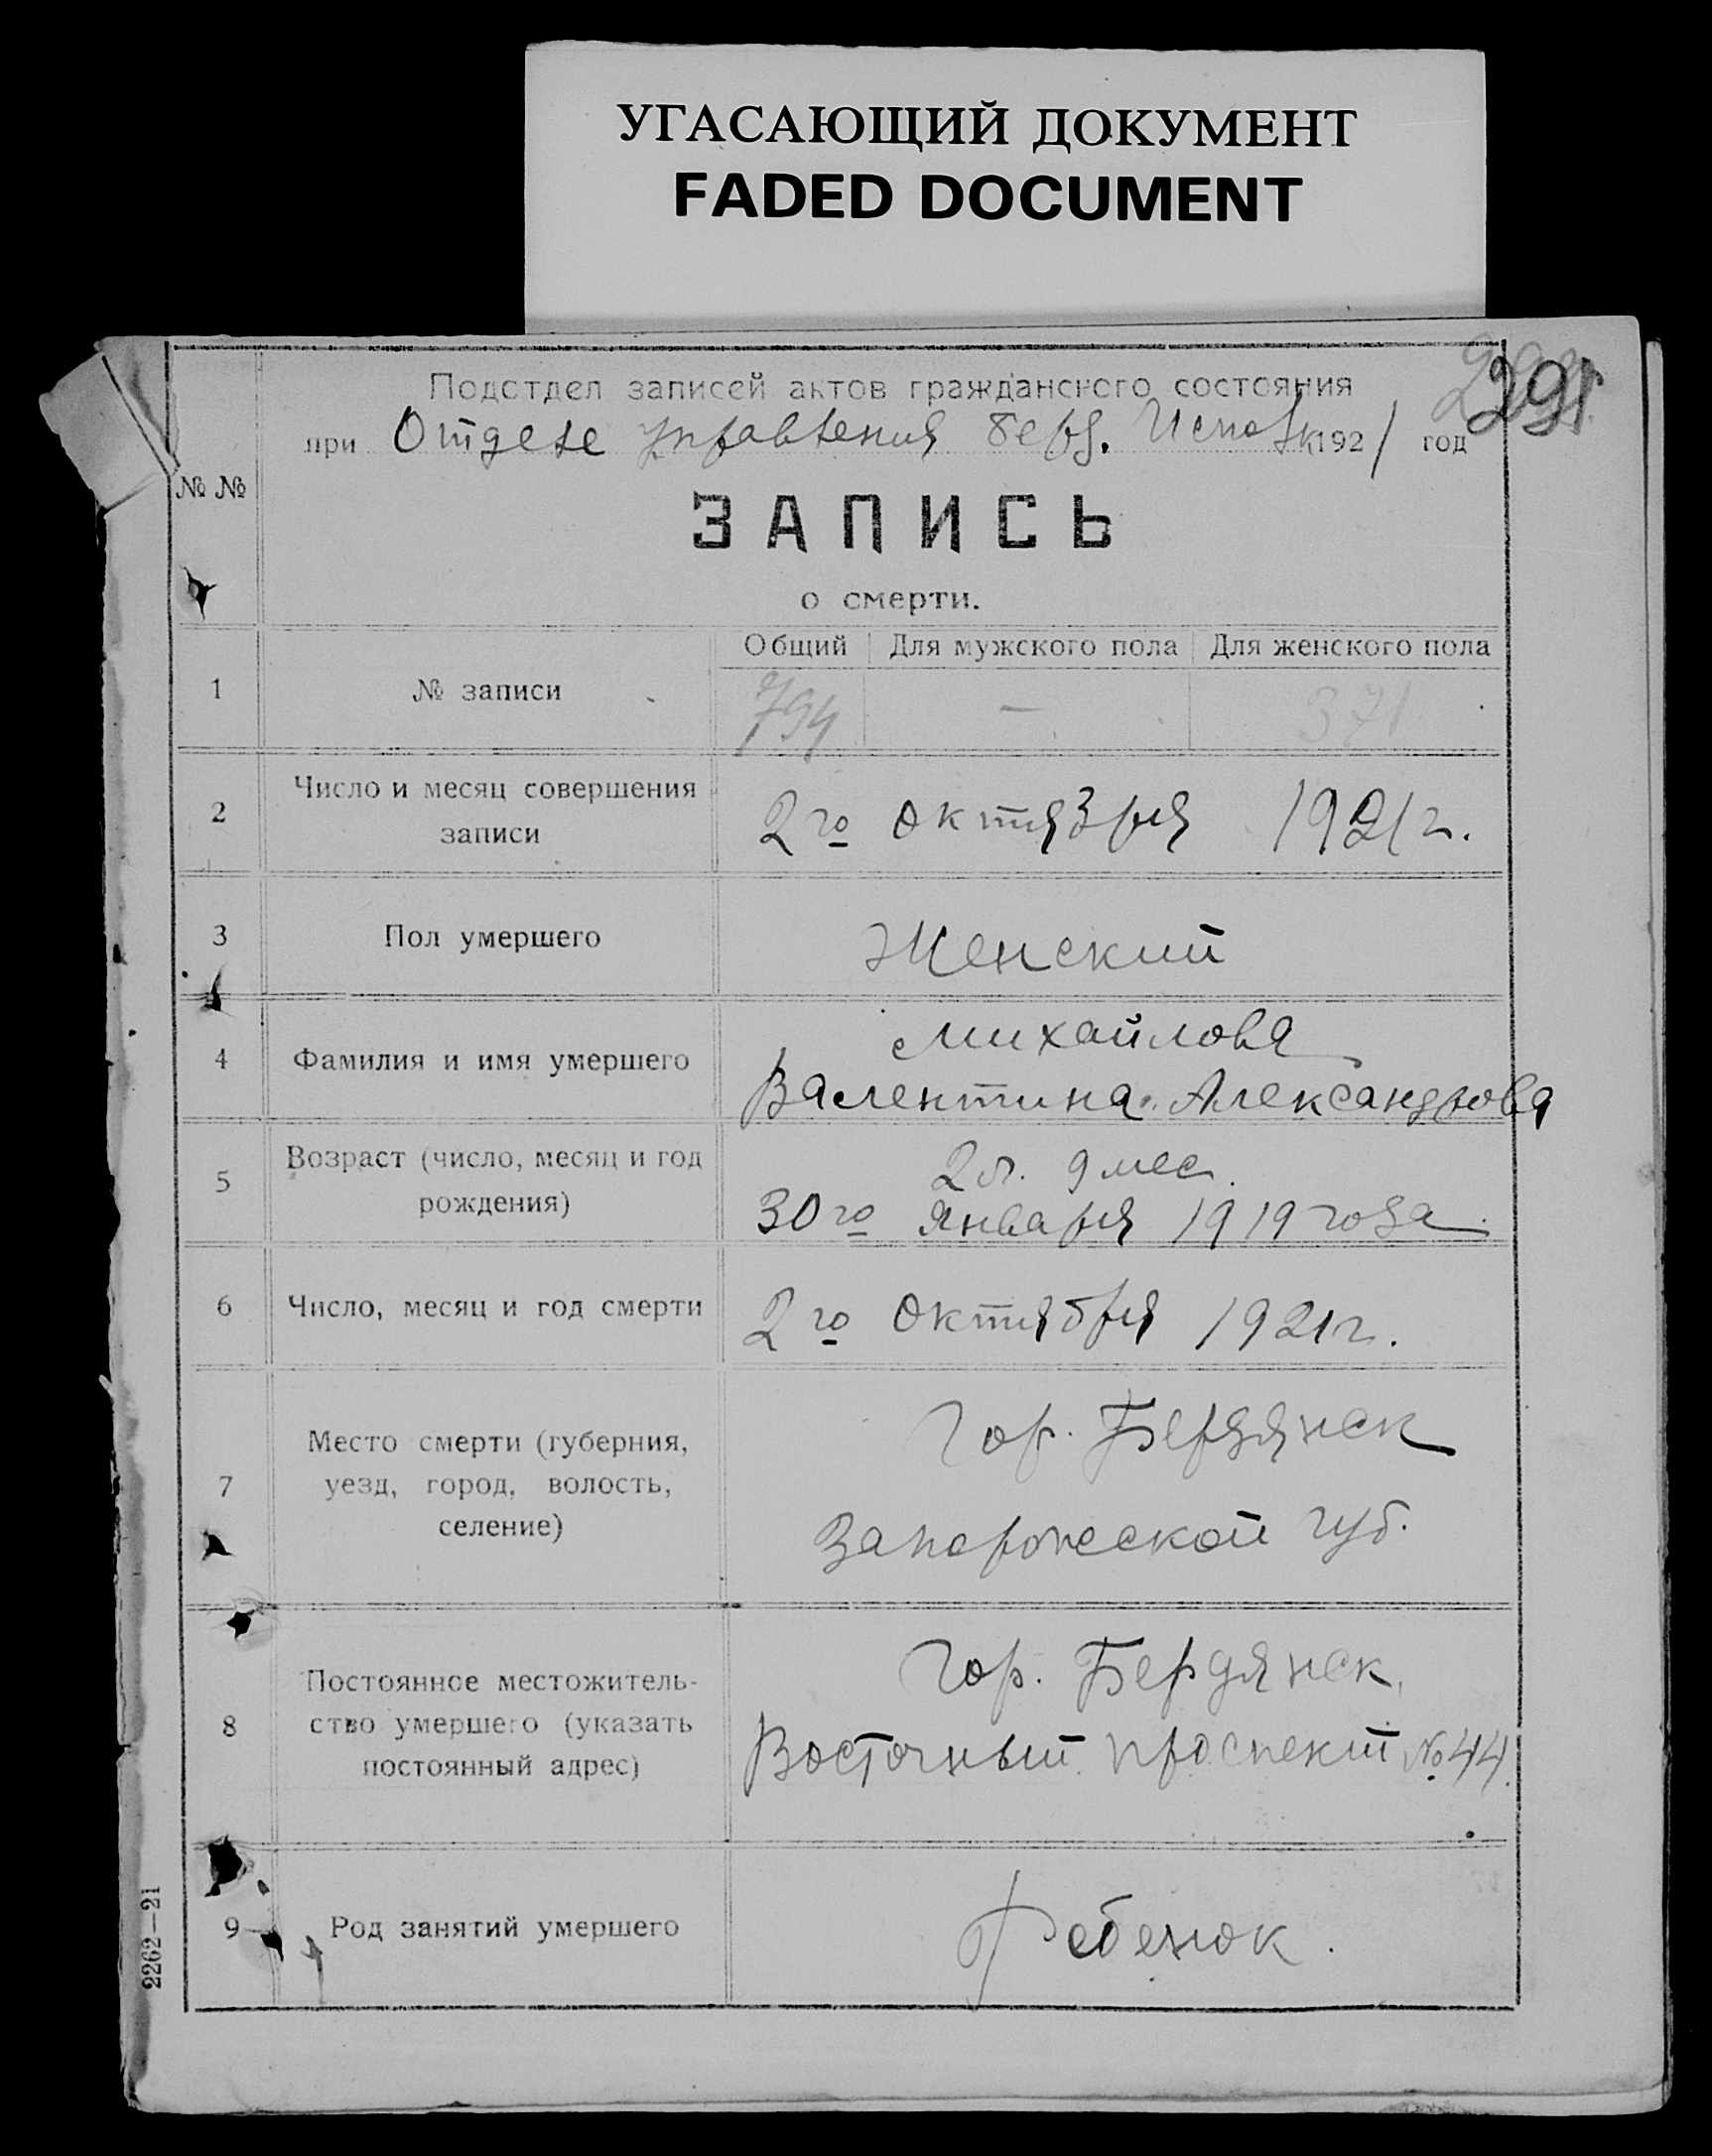 УГАСАЮЩИЙ ДОКУМЕНТ
FADED DOCUMENT
291
Подотдел записей актов гражданского состояния
при Отделе управления Берд. Исполк 1921 год
№ №
ЗАПИСЬ
о смерти.
Общий Для мужского пола Для женского пола
1 № записи 794 — 371
2 Число и месяц совершения
записи
2го октября 1921 г.
3 Пол умершего Женский
4 Фамилия и имя умершего
Михайлова
Валентина Александрова
5 Возраст (число, месяц и год
рождения)
2 л. 9 мес.
30го января 1919 года
6 Число, месяц и год смерти 2го октября 1921 г.
7 Место смерти (губерния,
уезд, город, волость,
селение)
Гор. Бердянск
Запорожской губ.
8 Постоянное местожитель-
ство умершего (указать
постоянный адрес)
Гор. Бердянск,
Восточный проспект № 44.
9 Род занятий умершего Ребенок.
2262—21